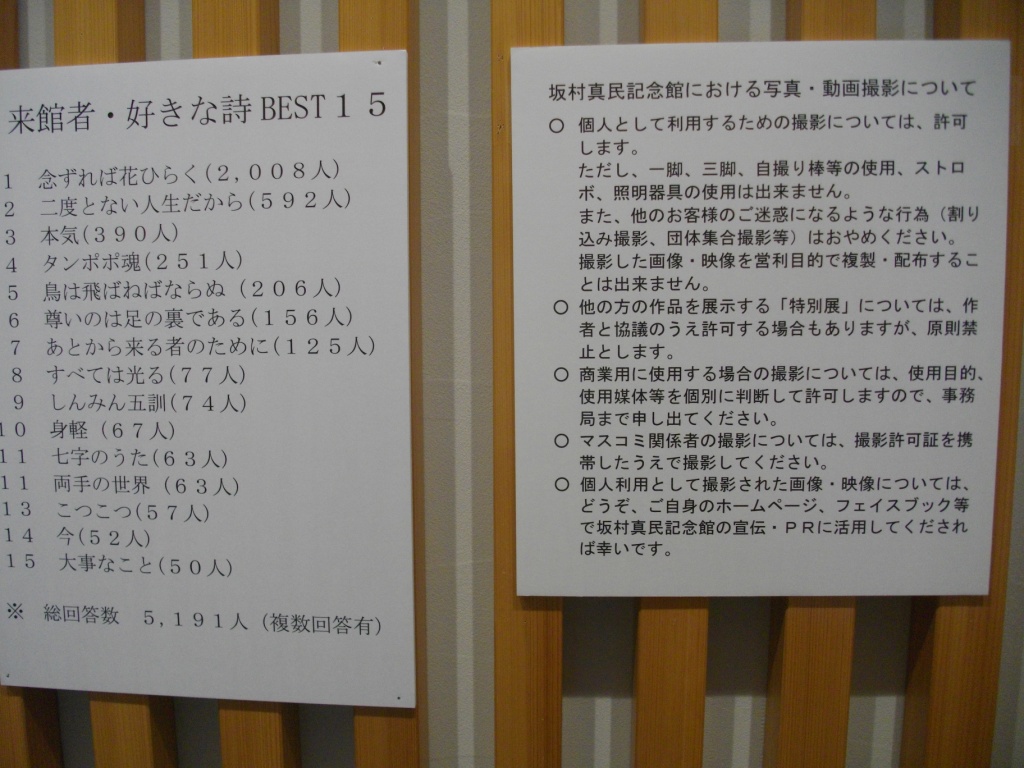 来館者・好きな詩 BEST１５
1 念ずれば花ひらく(２,００８人)
2 二度とない人生だから(５９２人)
3 本気(３９０人)
4 タンポポ魂(２５１人)
5 鳥は飛ばねばならぬ (２０６人)
6 尊いのは足の裏である(１５６人)
7 あとから来る者のために(１２５人)
8 すべては光る(７７人)
9 しんみん五訓(７４人)
10 身軽 (６７人)
11 七字のうた(６３人)
11 両手の世界 (６３人)
13 こつこつ(５７人)
14 今(５２人)
15 大事なこと(５０人)
※ 総回答数 ５,１９１人（複数回答有）
坂村真民記念館における写真・動画撮影について
○ 個人として利用するための撮影については、許可
します。
ただし、一脚、三脚、自撮り棒等の使用、ストロ
ボ、照明器具の使用は出来ません。
また、他のお客様のご迷惑になるような行為（割り
込み撮影、団体集合撮影等）はおやめください。
撮影した画像・映像を営利目的で複製・配布するこ
とは出来ません。
○ 他の方の作品を展示する「特別展」については、作
者と協議のうえ許可する場合もありますが、原則禁
止とします。
○ 商業用に使用する場合の撮影については、使用目的、
使用媒体等を個別に判断して許可しますので、事務
局まで申し出てください。
○ マスコミ関係者の撮影については、撮影許可証を携
帯したうえで撮影してください。
○ 個人利用として撮影された画像・映像については、
どうぞ、ご自身のホームページ、フェイスブック等
で坂村真民記念館の宣伝・ＰＲに活用してくだされ
ば幸いです。